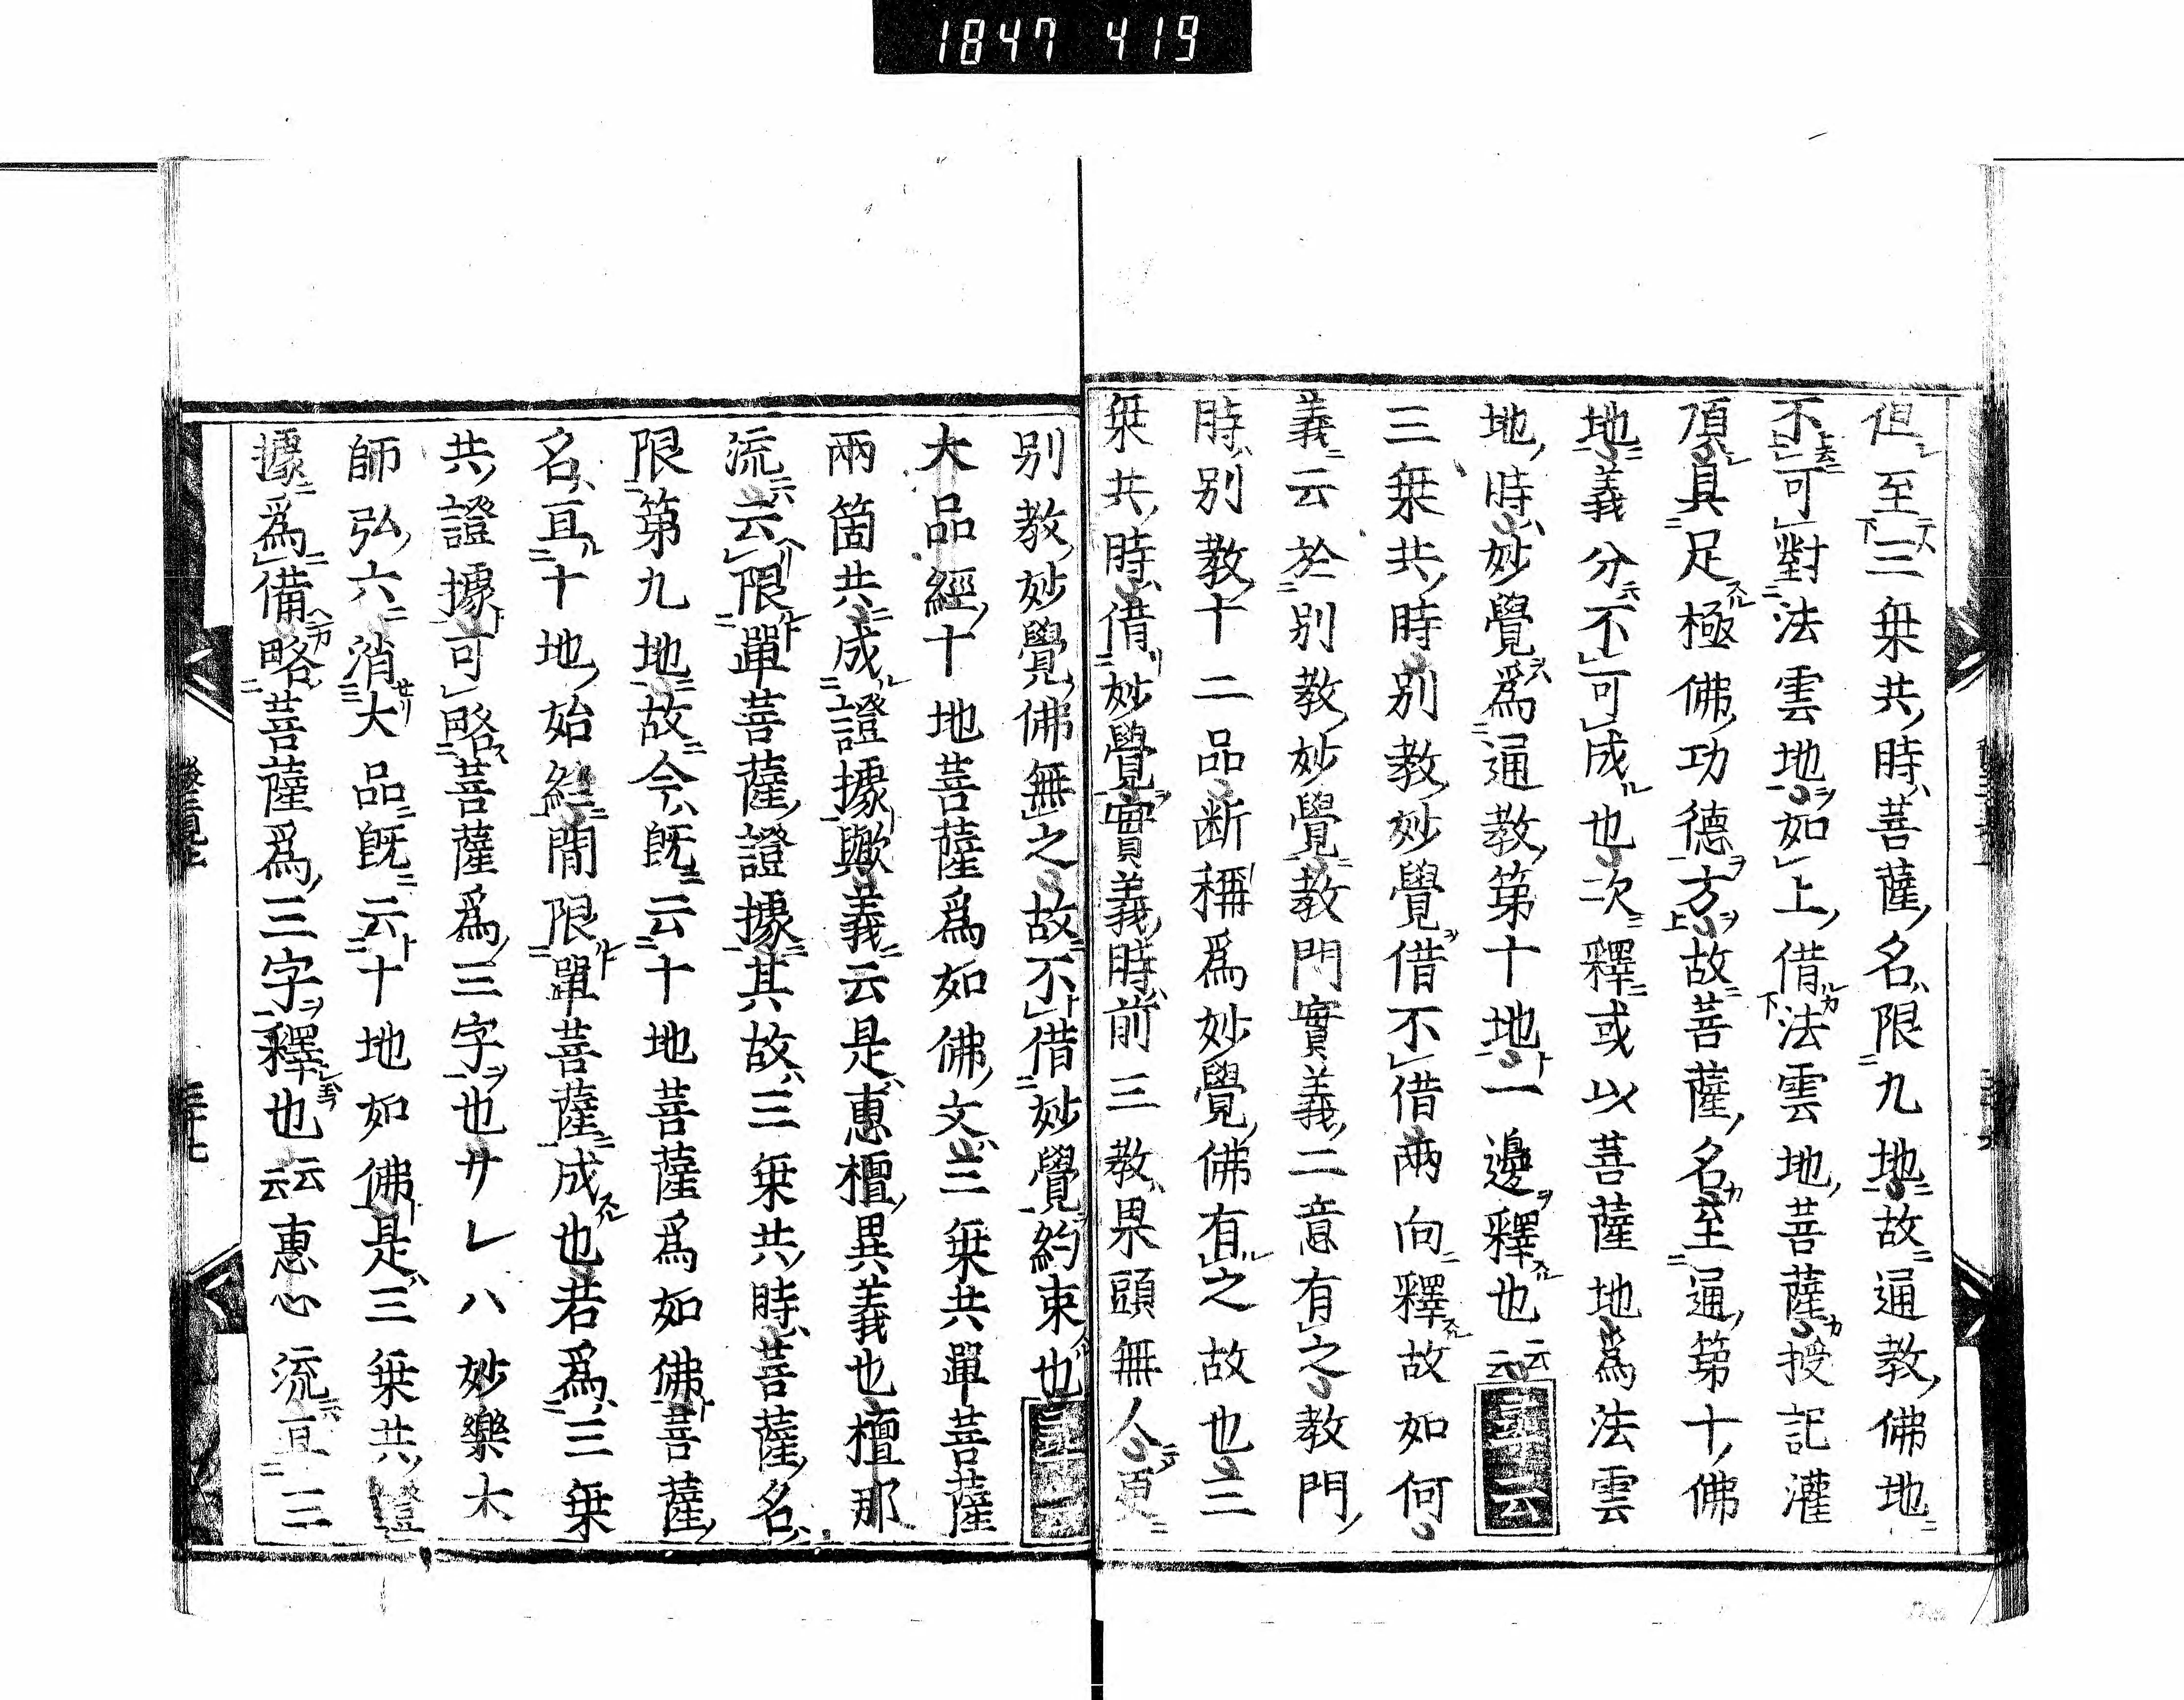 1847 419
但至三乗共時菩薩名限九地故通教佛地
不可對法雲地如上借法雲地菩薩授記灌
頂具足極佛功德方故菩薩名至通第十佛
地義分不可成也次釋或以菩薩地爲法雲
地時妙覺爲通教第十地一邊釋也云云
三乗共時別教妙覺借不借兩向釋故如何
義云於別教妙覺教門實義二意有之教門
時別教十二品断稱爲妙覺佛有之故也三
乗共時借妙覺實義時前三教果頭無人更
別教妙覺佛無之故不借妙覺約束也
大品經十地菩薩爲如佛文三乗共單菩薩
兩箇共成證據歟義云是惠檀異義也檀那
流云限單菩薩證據其故三乗共時菩薩名
限第九地故今既云十地菩薩爲如佛菩薩
名亘十地始終間限單菩薩成也若爲三乗
共證據可略菩薩爲三字也サレハ妙樂大
師弘六消大品既云十地如佛是三乗共證
據爲備略菩薩爲三字釋也云云惠心流亘三